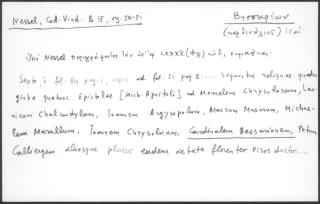 Nessel, Cod. Vind. P. IV, pg. 50-51
Βησσαρίων
(καρδινάλιος)
Nessel
Sexto, à fol. pag. 1, usque ad fol. pag. 2 ..... sequuntur reliquae quadra
ginta quatuor Epistolae [Mich. Apostoli] ad Manuelem Chrysoloram, Lao-
nicum Chalcondylem, Joannem Argyropulum, Marcum Musurum, Michae-
lem Marullum, Joannem Chrysoloram, Cardinalem Bessarionem, Petrum
Calliergem aliosque plures eadem aetate florentes viros doctos...